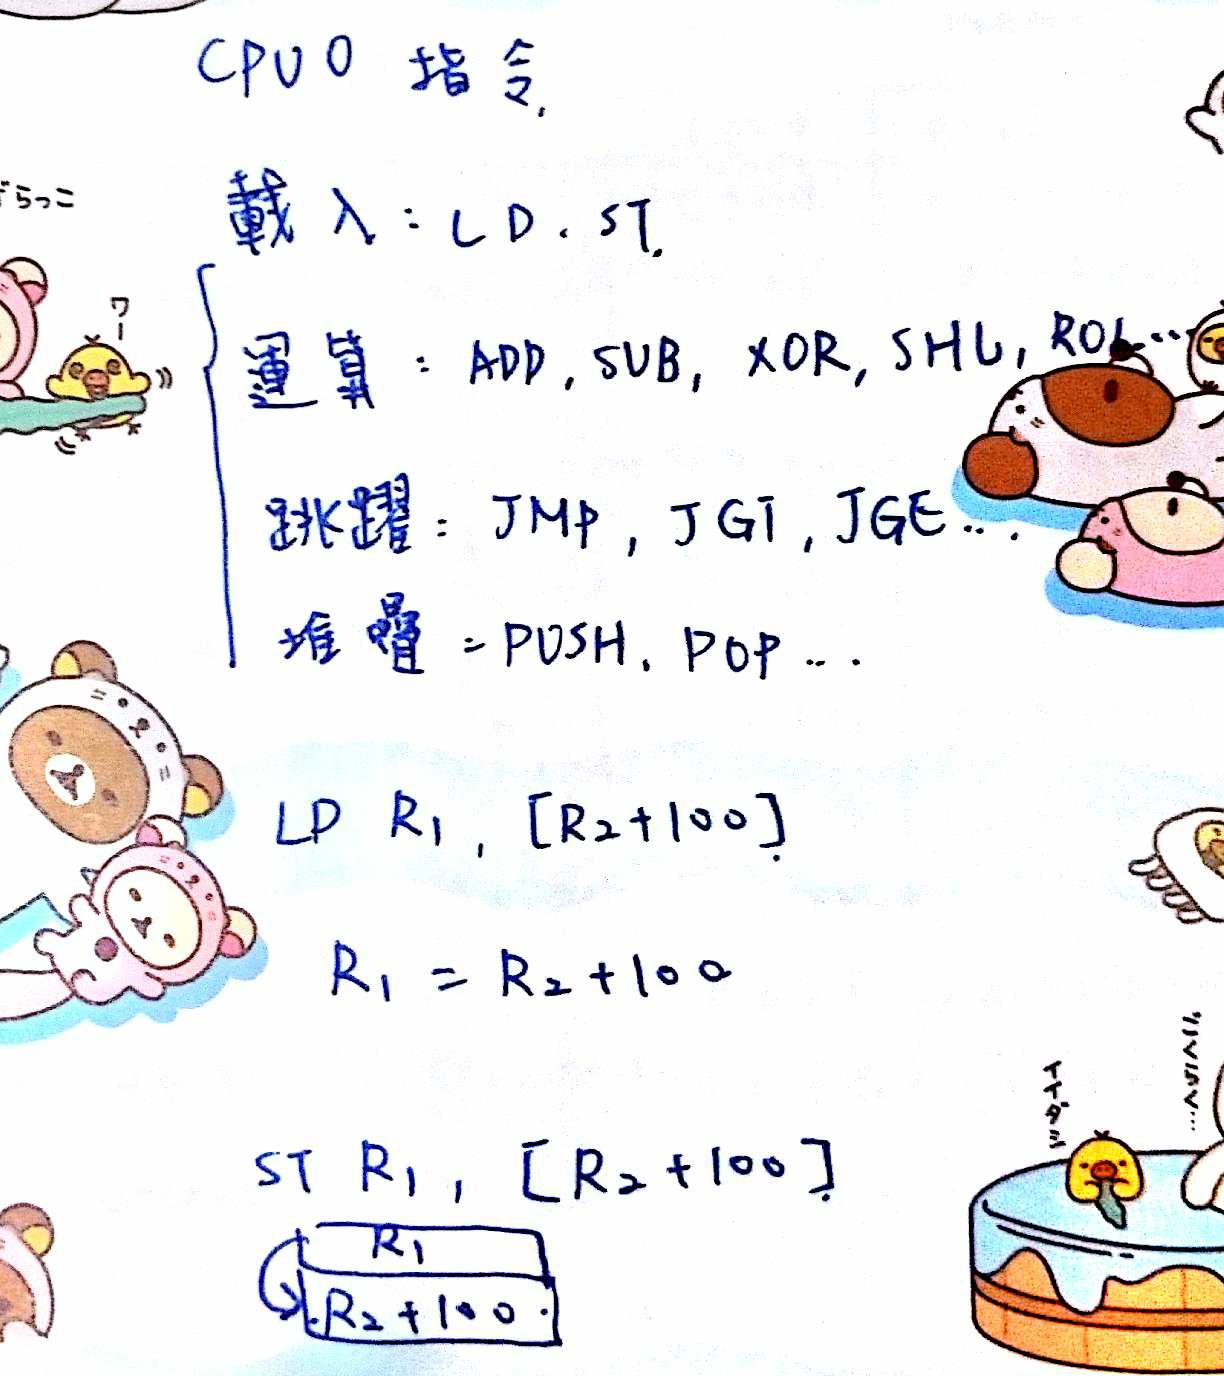 CPU0 指令.
載入：LD. ST.
運算：ADD, SUB, XOR, SHL, ROL...
跳躍：JMP, JGT, JGE...
堆疊：PUSH. POP...
LD R1, [R2+100].
R1 = R2+100
ST R1, [R2+100].
R1
R2+100
らっこ
ワー